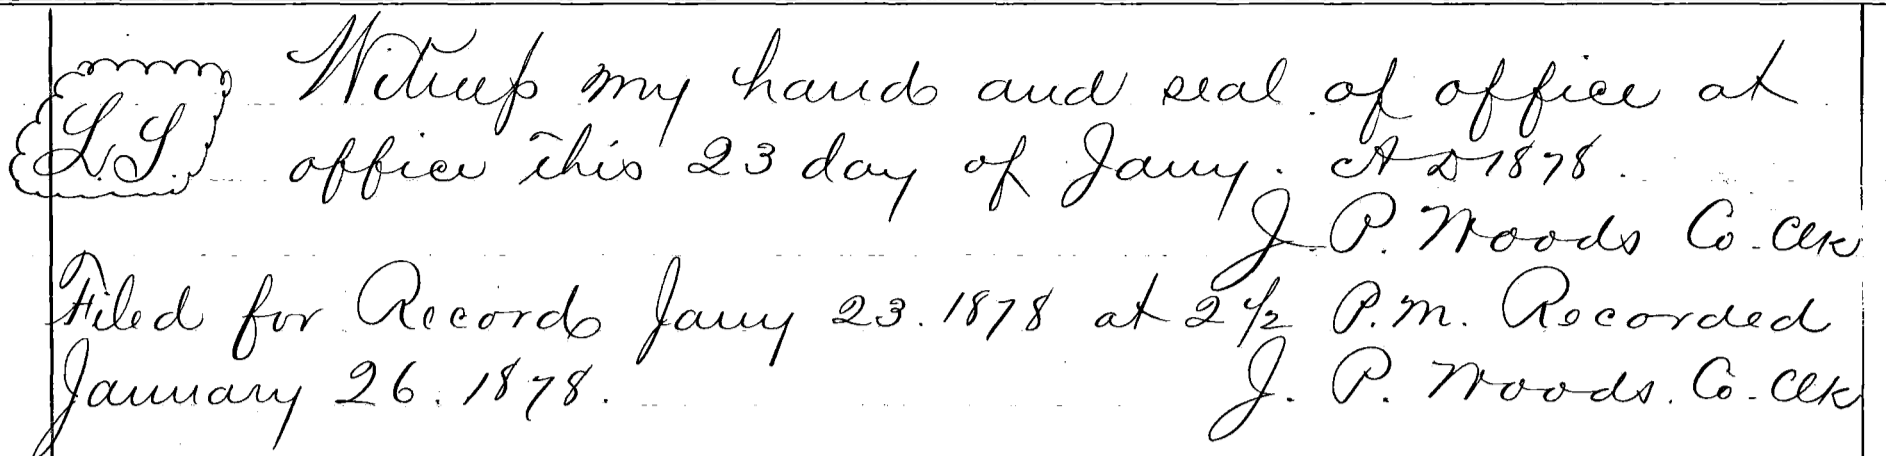 L.S. Witness my hand and seal of office at
office this 23 day of Jany. A D 1878.
J. P. Woods Co. Clk
Filed for Record Jany 23. 1878 at 2 1/2 P.M. Recorded
January 26. 1878. J. P. Woods. Co. Clk